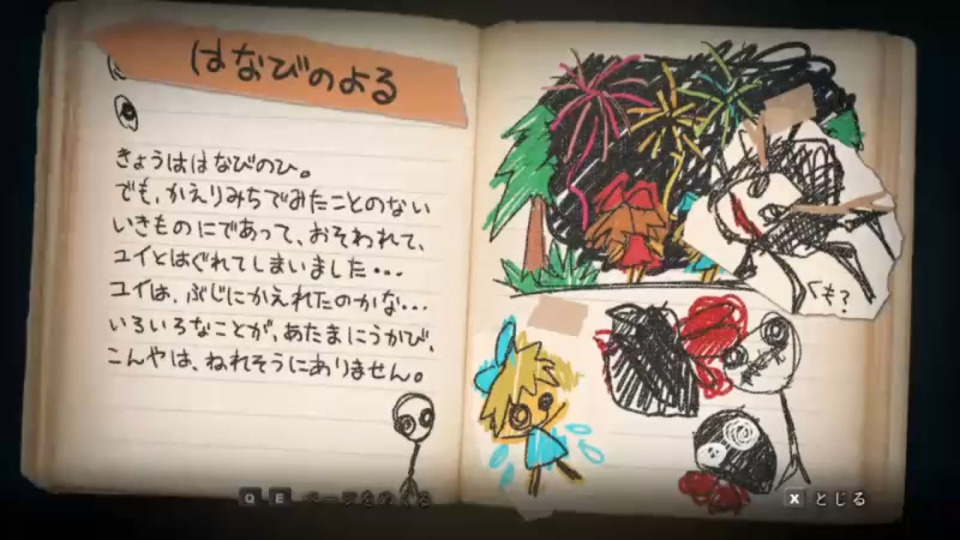 はなびのよる
きょうははなびのひ。
でも、かえりみちでみたことのない
いきものにであって、おそわれて、
ユイとはぐれてしまいました・・・
ユイは、ぶじにかえれたのかな・・・
いろいろなことが、あたまにうかび、
こんやは、ねれそうにありません。
くも?
Q E ページをめくる
X とじる